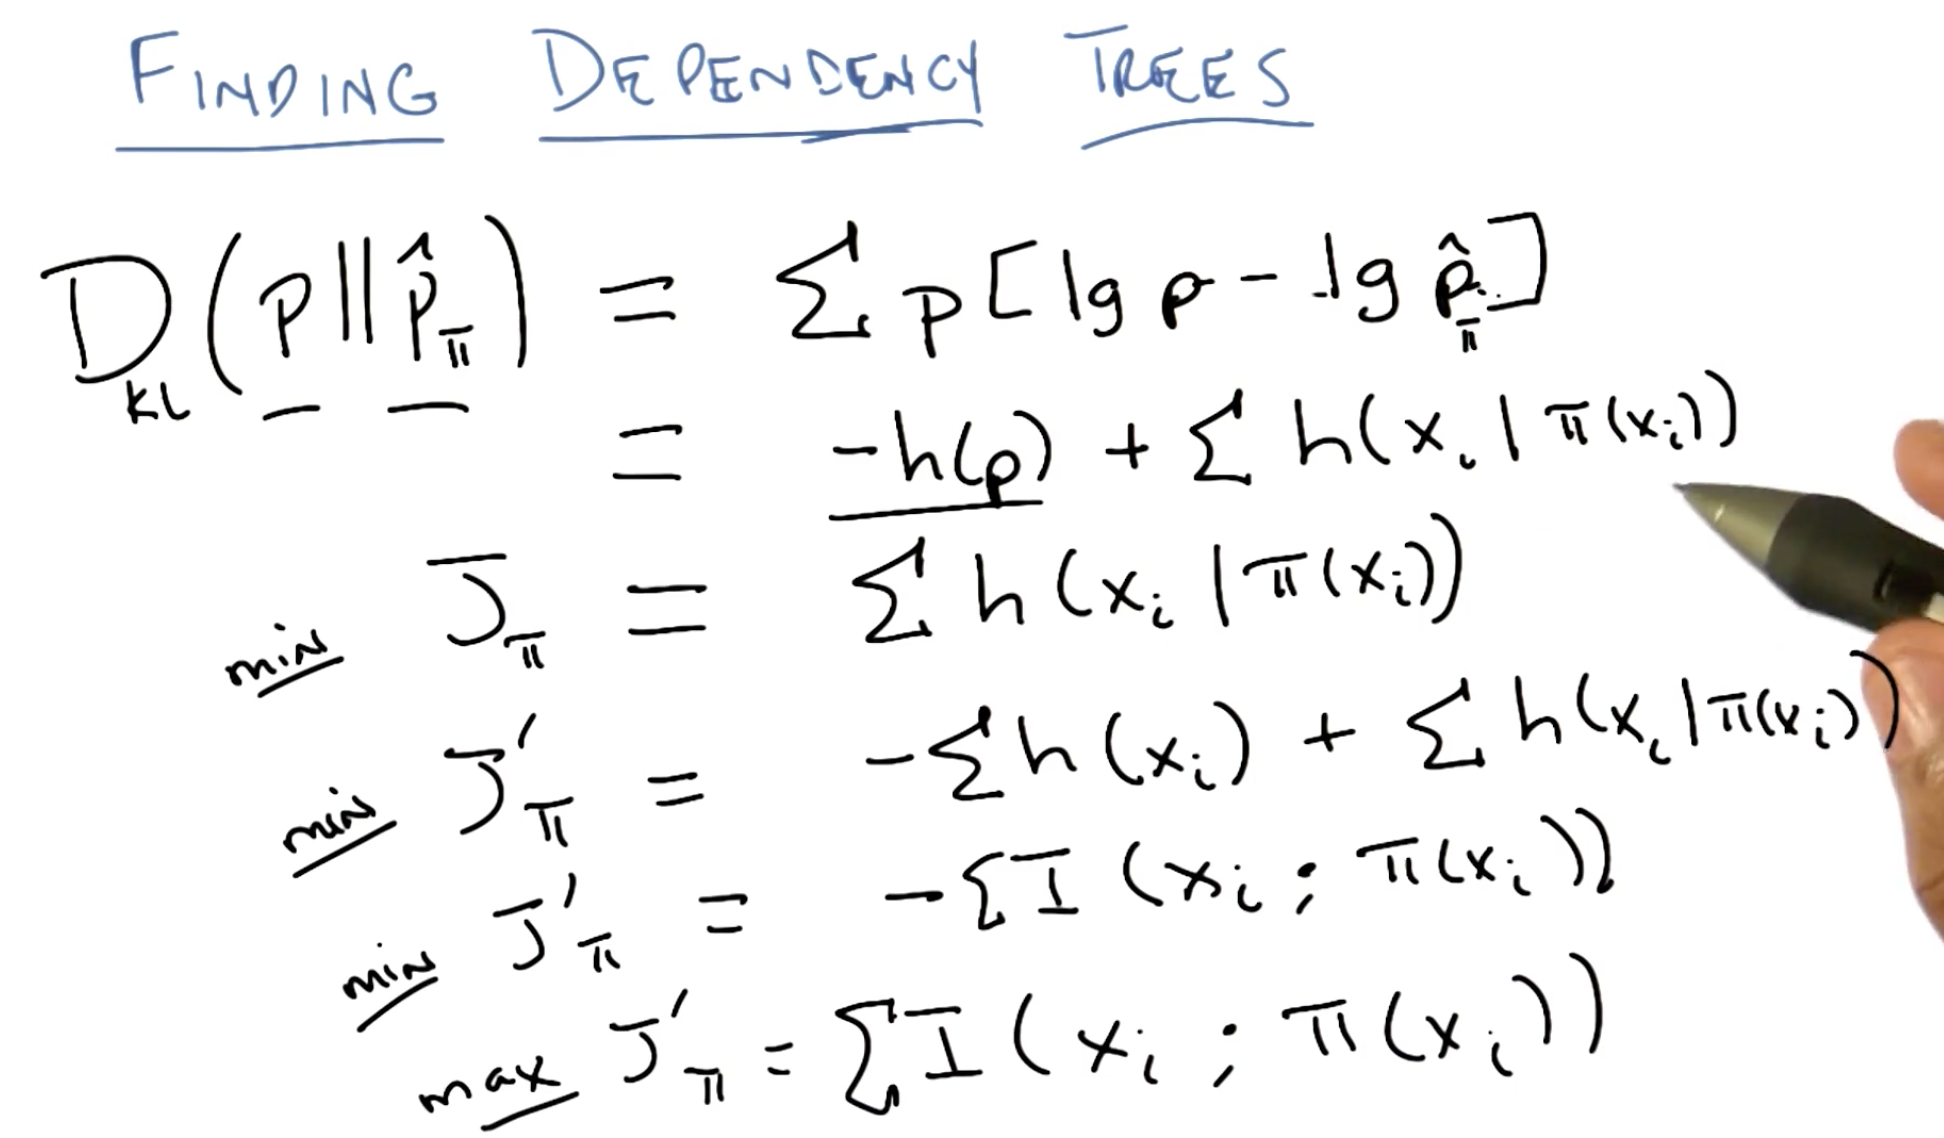 FINDING DEPENDENCY TREES
D_KL(p||p̂_π) = Σ p[lg p - lg p̂_π]
= -h(p) + Σ h(x_i | π(x_i))
min J_π = Σ h(x_i | π(x_i))
min J'_π = -Σ h(x_i) + Σ h(x_i | π(x_i))
min J'_π = -Σ I(x_i ; π(x_i))
max J'_π = Σ I(x_i ; π(x_i))